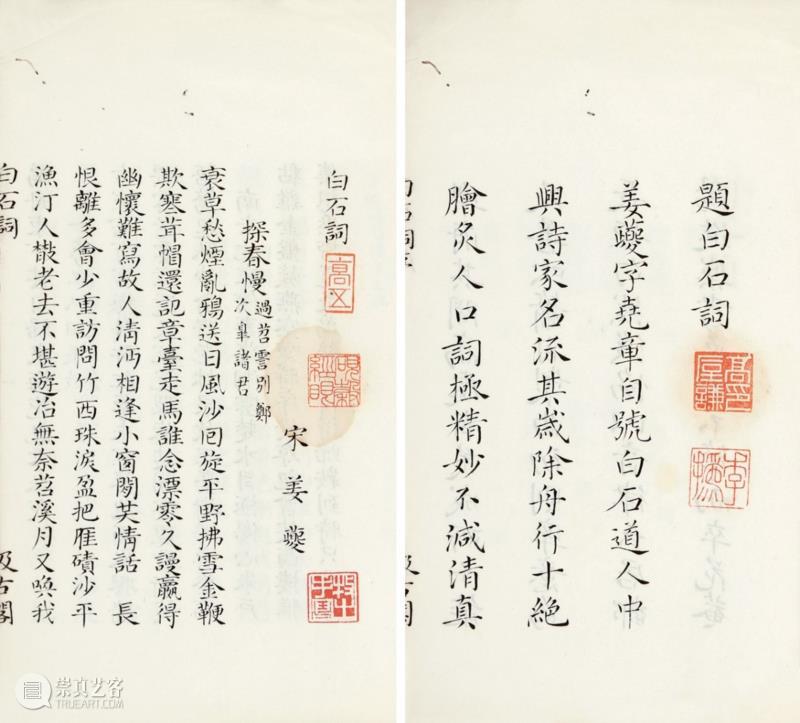 題白石詞
姜夔字堯章自號白石道人中
興詩家名流其歲除舟行十絶
膾炙人口詞極精妙不減清真
白石詞
宋姜夔
探春慢
過苕霅別鄭
次皐諸君
衰草愁煙亂鴉送日風沙回旋平野拂雪金鞭
欺寒茸帽還記章臺走馬誰念漂零久謾贏得
幽懷難寫故人清沔相逢小窗閒共情話 長
恨離多會少重訪問竹西珠淚盈把雁磧沙平
漁汀人散老去不堪遊冶無奈苕溪月又喚我
白石詞
汲古閣
崇真艺客
TRUEART.COM